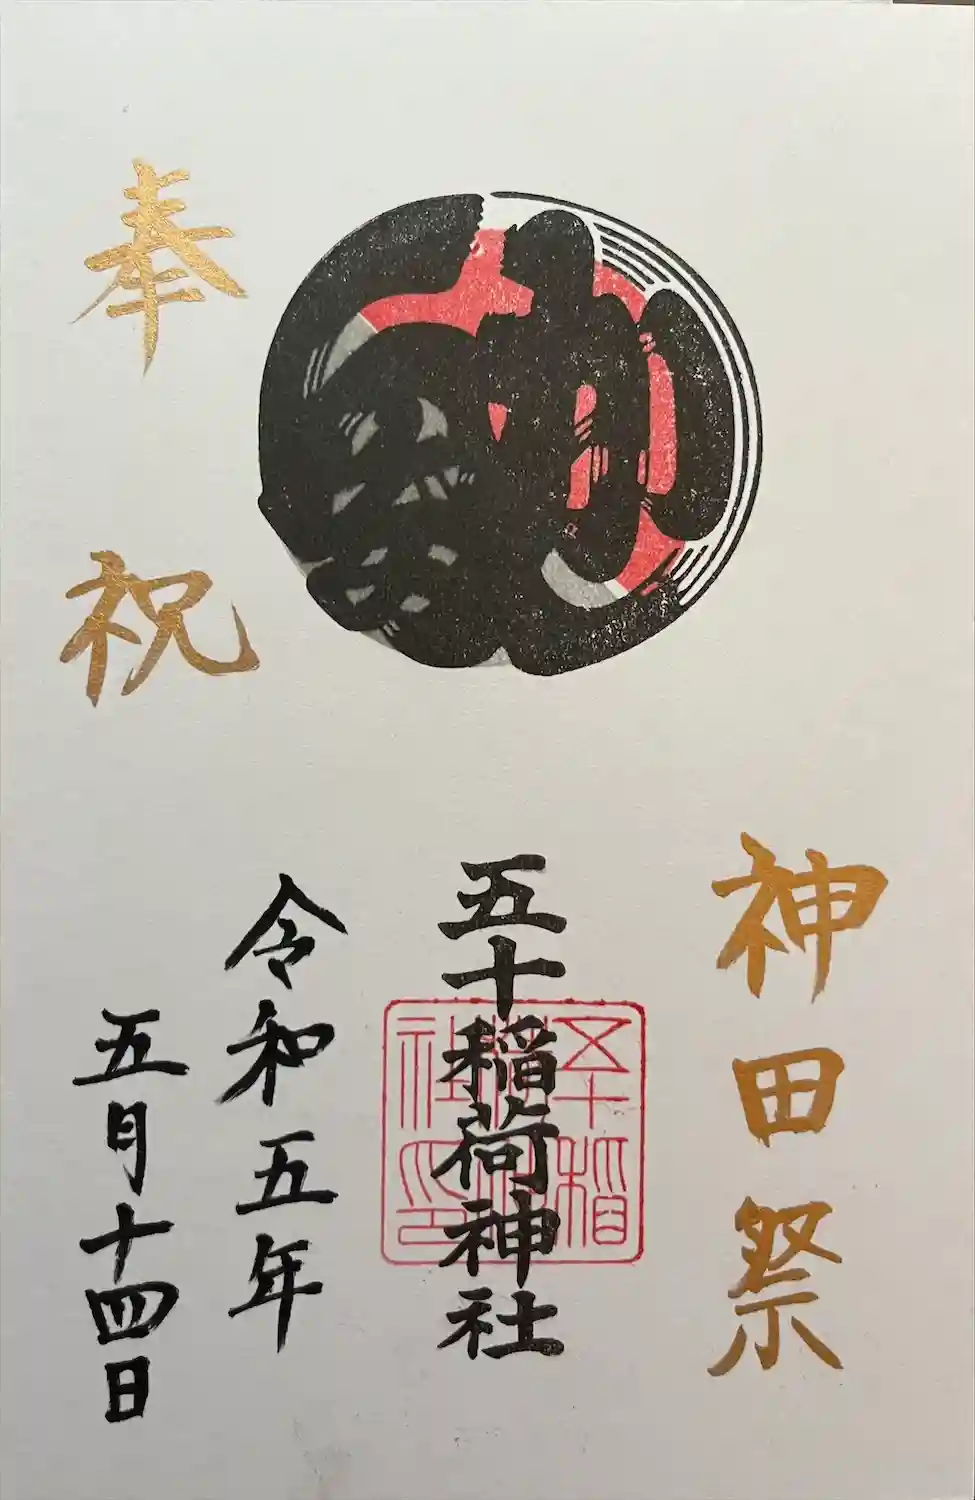 神田祭
五十稲荷神社
令和五年
五月十四日
奉祝